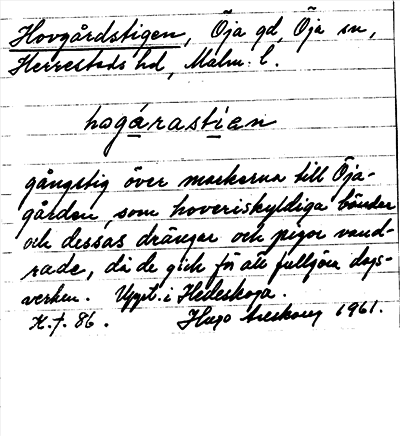 Hovgårdstigen, Öja gd, Öja sn,
Herrestads hd, Malm. l.
hogárastien
gångstig över markerna till Öja-
gården, som hoveriskyldiga bönder
och dessas drängar och pigor vand-
rade, då de gick för att fullgöra dags-
verken. Uppt. i Hedeskoga.
K. f. 86. Hugo Areskoug 1961.